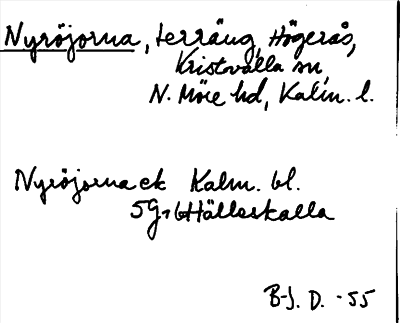 Nyröjorna, terräng, Högerås,
Kristvalla sn,
N. Möre hd, Kalm. l.
Nyröjorna ek Kalm. bl.
5G Hälleskalla
B-J. D. -55